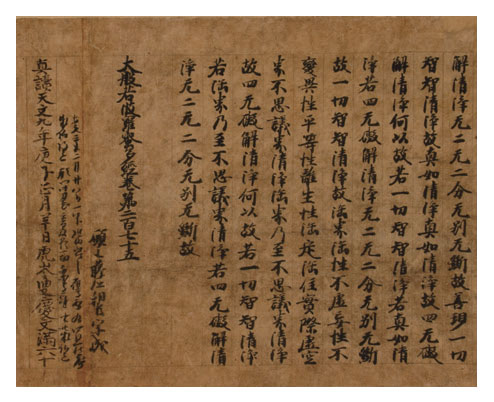 解清淨无二无二分无別无斷故善現一切
智智清淨故真如清淨真如清淨故四无礙
解清淨何以故若一切智智清淨若真如清
淨若四无礙解清淨无二无二分无別无斷
故一切智智清淨故法界法性不虛妄性不
變異性平等性離生性法定法住實際虛空
界不思議界清淨法界乃至不思議界清淨
故四无礙解清淨何以故若一切智智清淨
若法界乃至不思議界清淨若四无礙解清
淨无二无二分无別无斷故
大般若波羅蜜多經卷第二百七十五
願主
真讀天文九年庚子正月